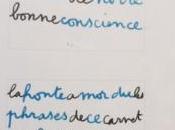 bonne conscience
la honte a mordu les
phrases de ce carnet